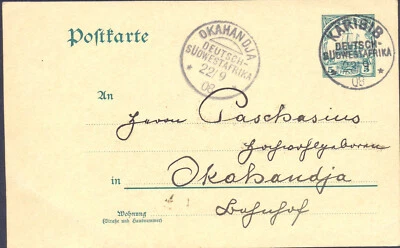 Postkarte
OKAHANDJA
DEUTSCH-
SÜDWESTAFRIKA
* 22/9
09
KARIBIB
DEUTSCH-
SÜDWESTAFRIKA
* *
09
5 5
An
Herrn Paschasius
Hochwohlgeboren
in Okahandja
Bahnhof
Wohnung
(Straße und Hausnummer)